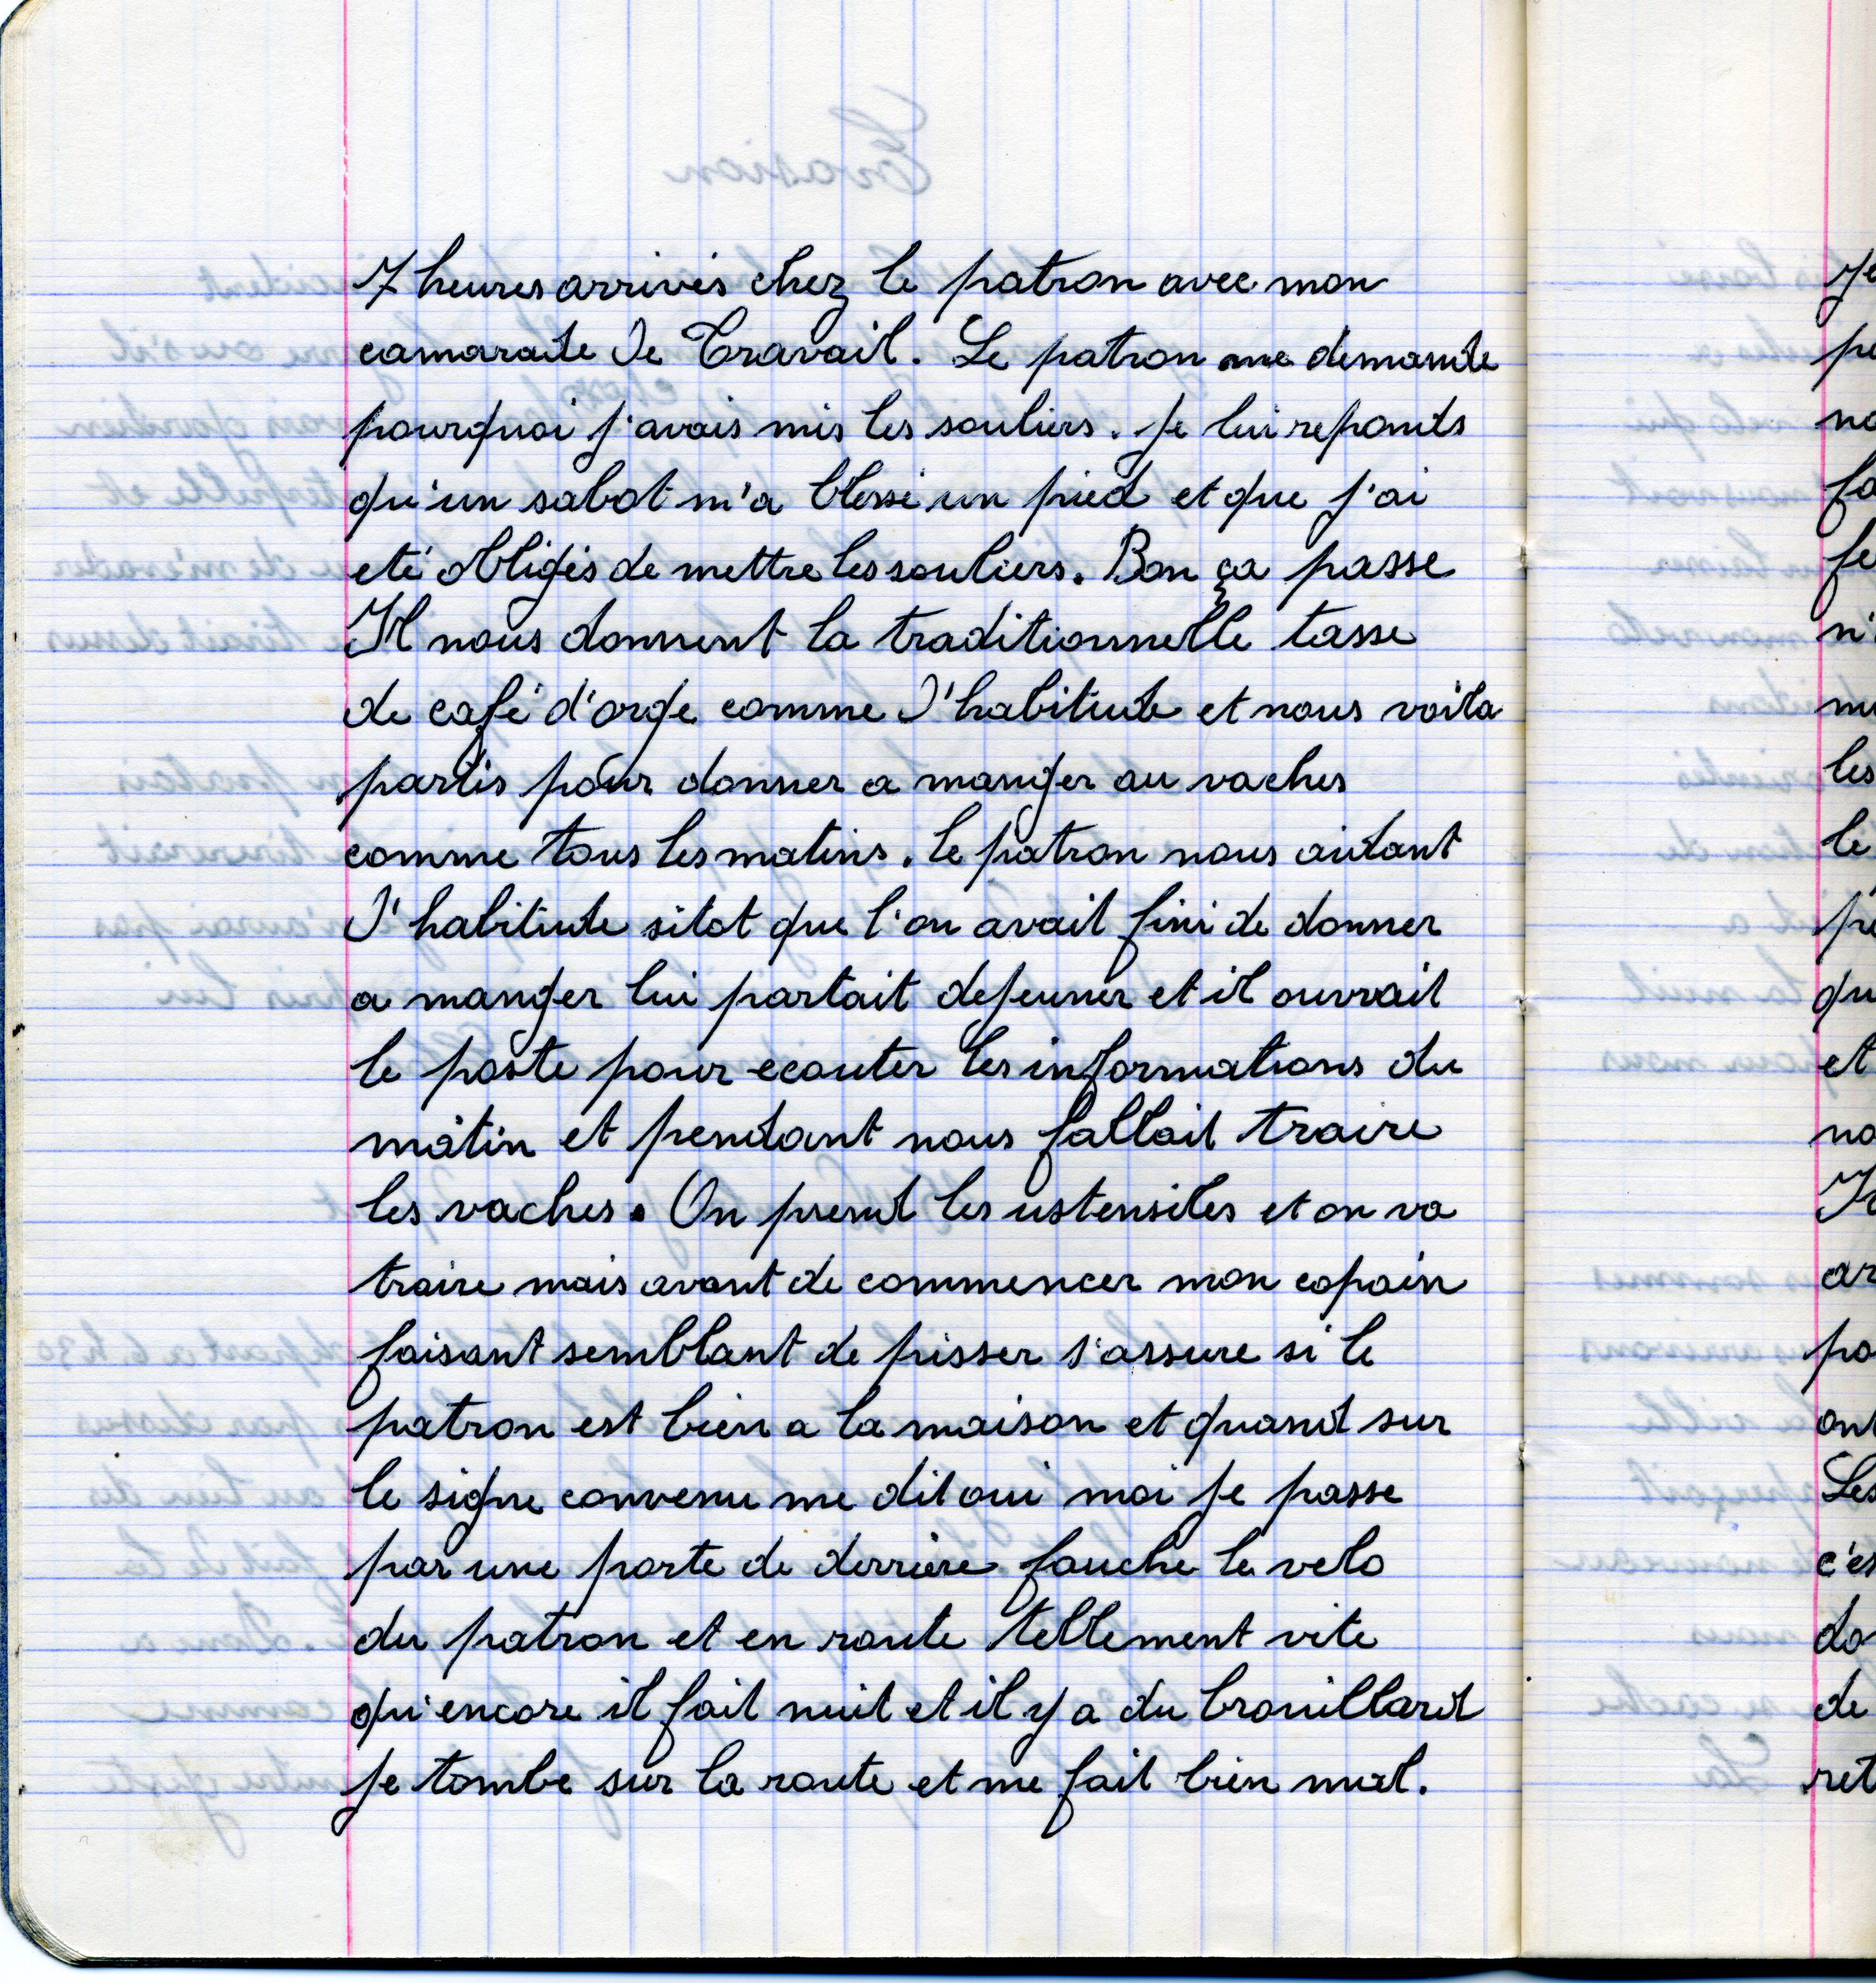 7 heures arrivés chez le patron avec mon
camarade de Travail. Le patron me demande
pourquoi j'avais mis les souliers. Je lui reponds
qu'un sabot m'a blessé un pied et que j'ai
eté obligés de mettre les souliers. Bon ça passe
Il nous donnent la traditionnelle tasse
de café d'orge comme d'habitude et nous voila
partis pour donner a manger au vaches
comme tous les matins. le patron nous aidant
d'habitude sitot que l'on avait fini de donner
a manger lui partait dejeuner et il ouvrait
le poste pour ecouter les informations du
matin et pendant nous fallait traire
les vaches. On prend les ustensiles et on va
traire mais avant de commencer mon copain
faisant semblant de pisser s'assure si le
patron est bien a la maison et quand sur
le signe convenu me dit oui moi je passe
par une porte de derrière fauche le velo
du patron et en route tellement vite
qu'encore il fait nuit et il y a du brouillard
je tombe sur la route et me fait bien mal.